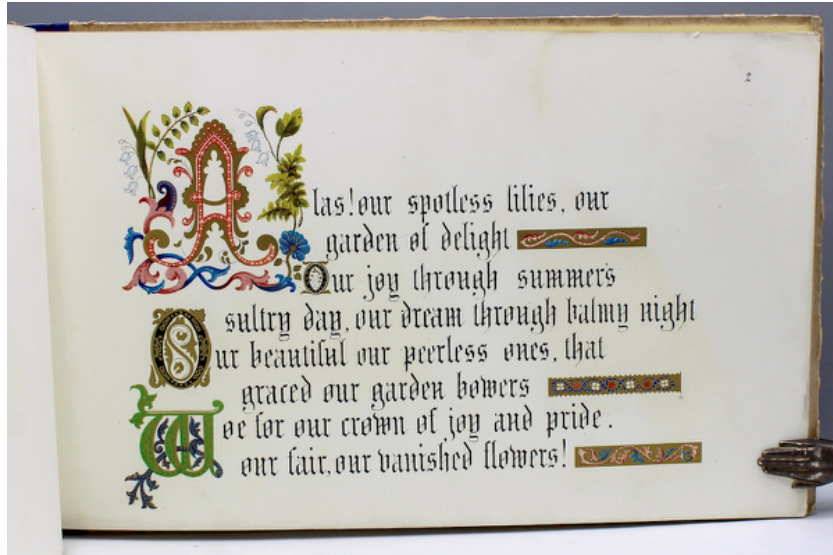 2
Alas! our spotless lilies, our
garden of delight
Our joy through summer's
sultry day, our dream through balmy night
Our beautiful our peerless ones, that
graced our garden bowers
Woe for our crown of joy and pride.
our fair, our vanished flowers!